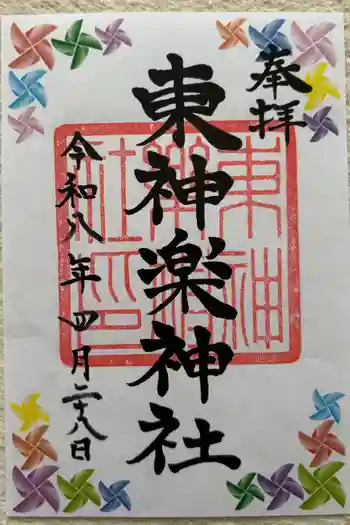 奉拝
東神楽神社
令和八年四月二十八日
東神楽神社印